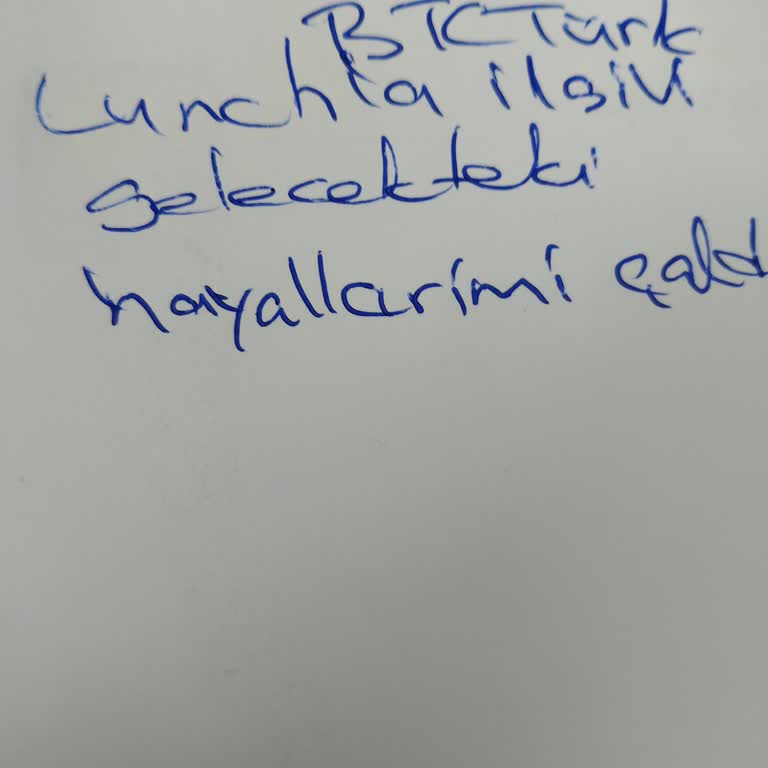 BTCTürk
Lunchla ilgili
gelecekteki
hayallarimi çald